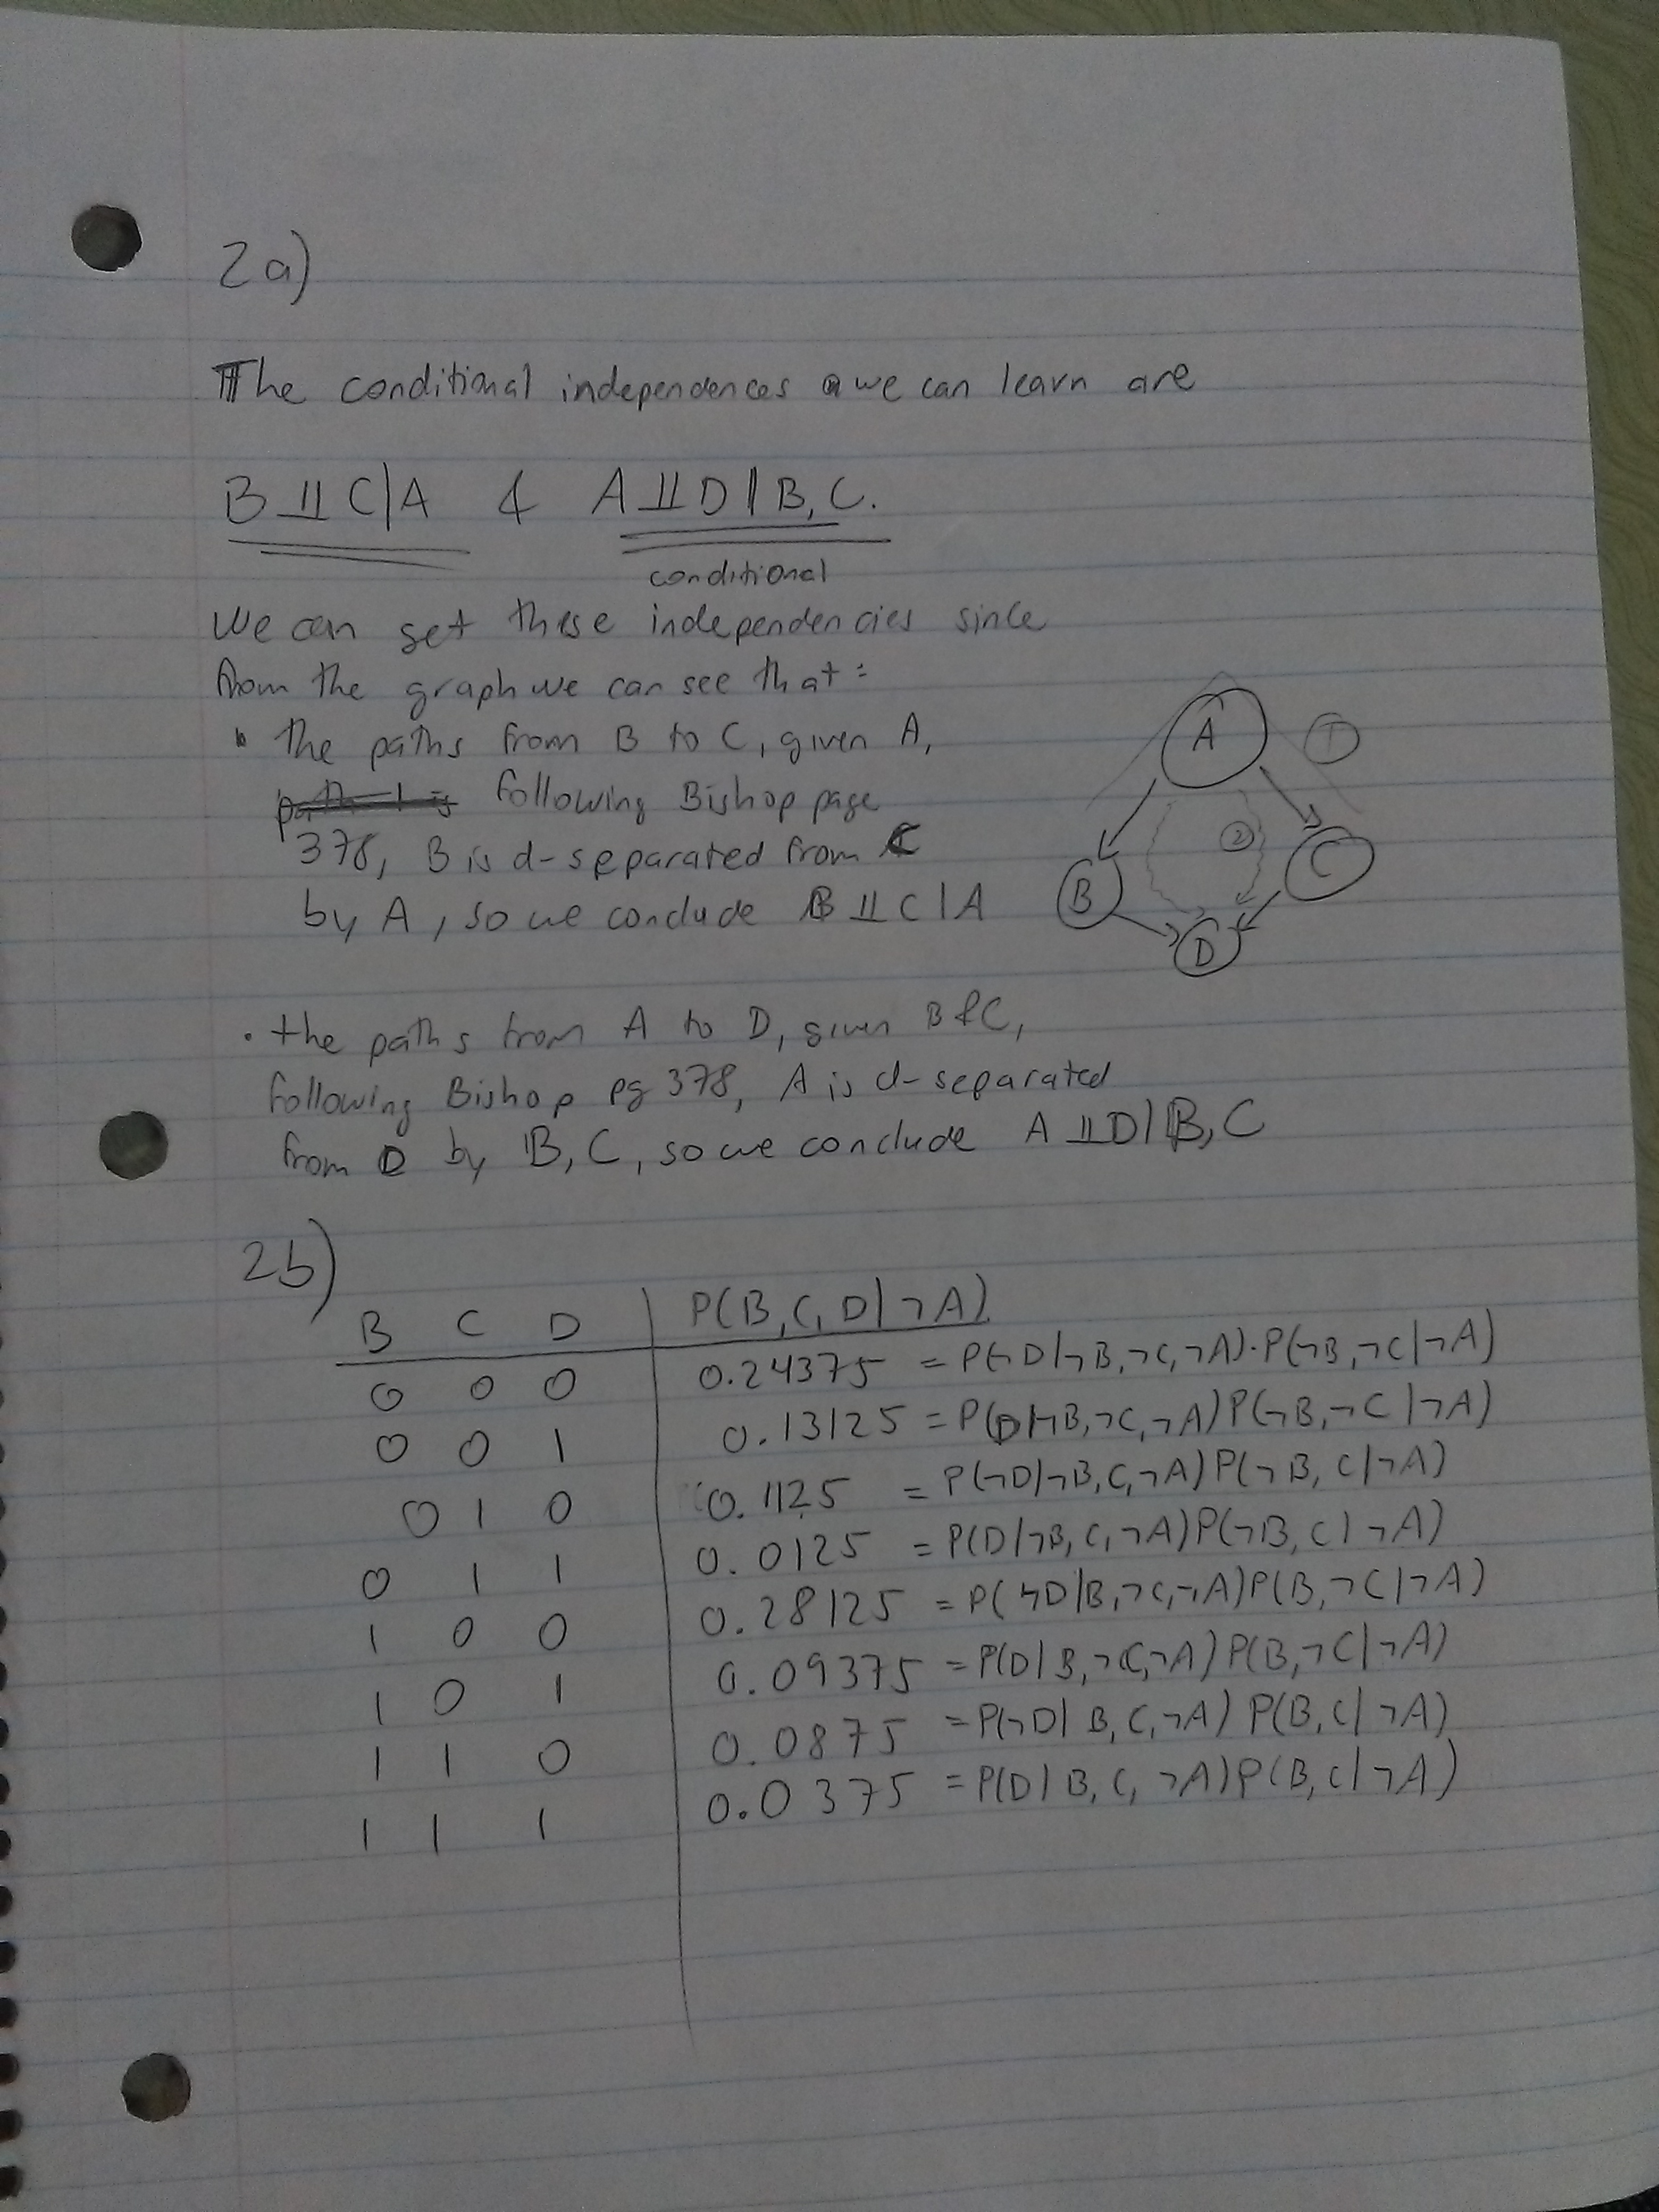 2a)
The conditional independences we can learn are
B ⫫ C | A & A ⫫ D | B, C.
conditional
We can get these independencies since
from the graph we can see that:
• the paths from B to C, given A,
following Bishop page
378, B is d-separated from C
by A, so we conclude B ⫫ C | A
A
①
②
B
C
D
• the paths from A to D, given B & C,
following Bishop pg 378, A is d-separated
from D by B, C, so we conclude A ⫫ D | B, C
2b)
B C D P(B, C, D | ¬A)
0 0 0 0.24375 = P(¬D|¬B,¬C,¬A)·P(¬B,¬C|¬A)
0 0 1 0.13125 = P(D|¬B,¬C,¬A)P(¬B,¬C|¬A)
0 1 0 0.1125 = P(¬D|¬B,C,¬A)P(¬B,C|¬A)
0 1 1 0.0125 = P(D|¬B,C,¬A)P(¬B,C|¬A)
1 0 0 0.28125 = P(¬D|B,¬C,¬A)P(B,¬C|¬A)
1 0 1 0.09375 = P(D|B,¬C,¬A)P(B,¬C|¬A)
1 1 0 0.0875 = P(¬D|B,C,¬A)P(B,C|¬A)
1 1 1 0.0375 = P(D|B,C,¬A)P(B,C|¬A)